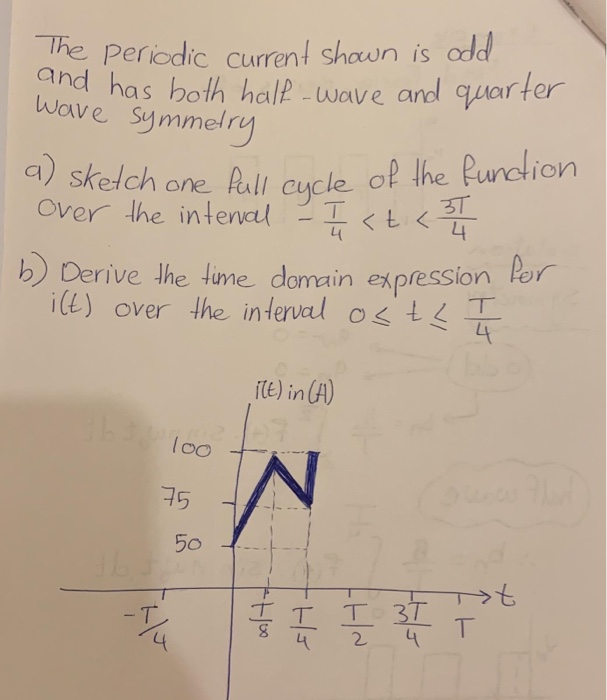 The periodic current shown is odd
and has both half-wave and quarter
wave symmetry
a) sketch one full cycle of the function
over the interval - T/4 < t < 3T/4
b) Derive the time domain expression for
i(t) over the interval 0 ≤ t ≤ T/4
i(t) in (A)
100
75
50
-T/4 T/8 T/4 T/2 3T/4 T t